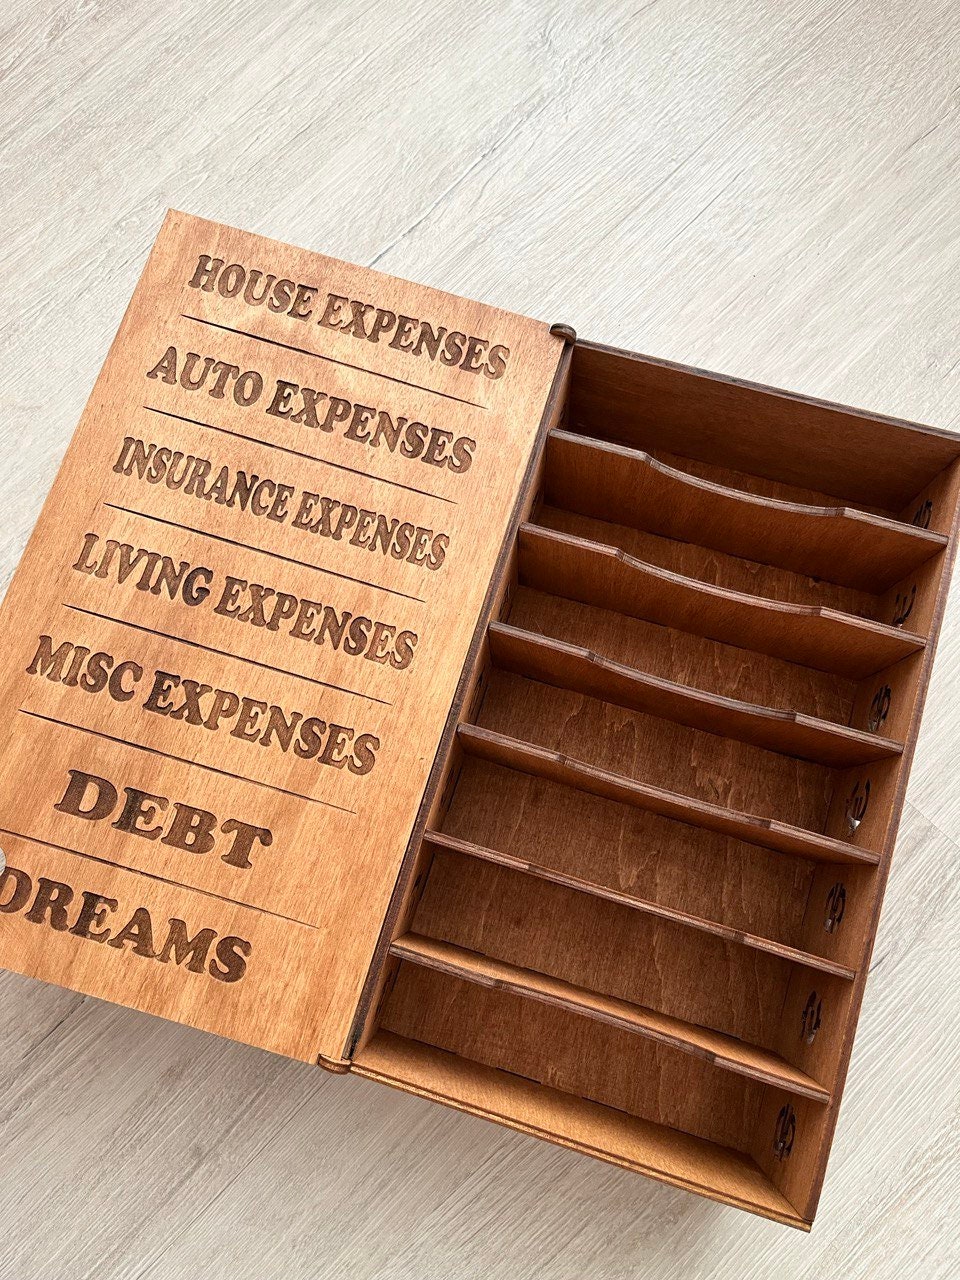 HOUSE EXPENSES
AUTO EXPENSES
INSURANCE EXPENSES
LIVING EXPENSES
MISC EXPENSES
DEBT
DREAMS